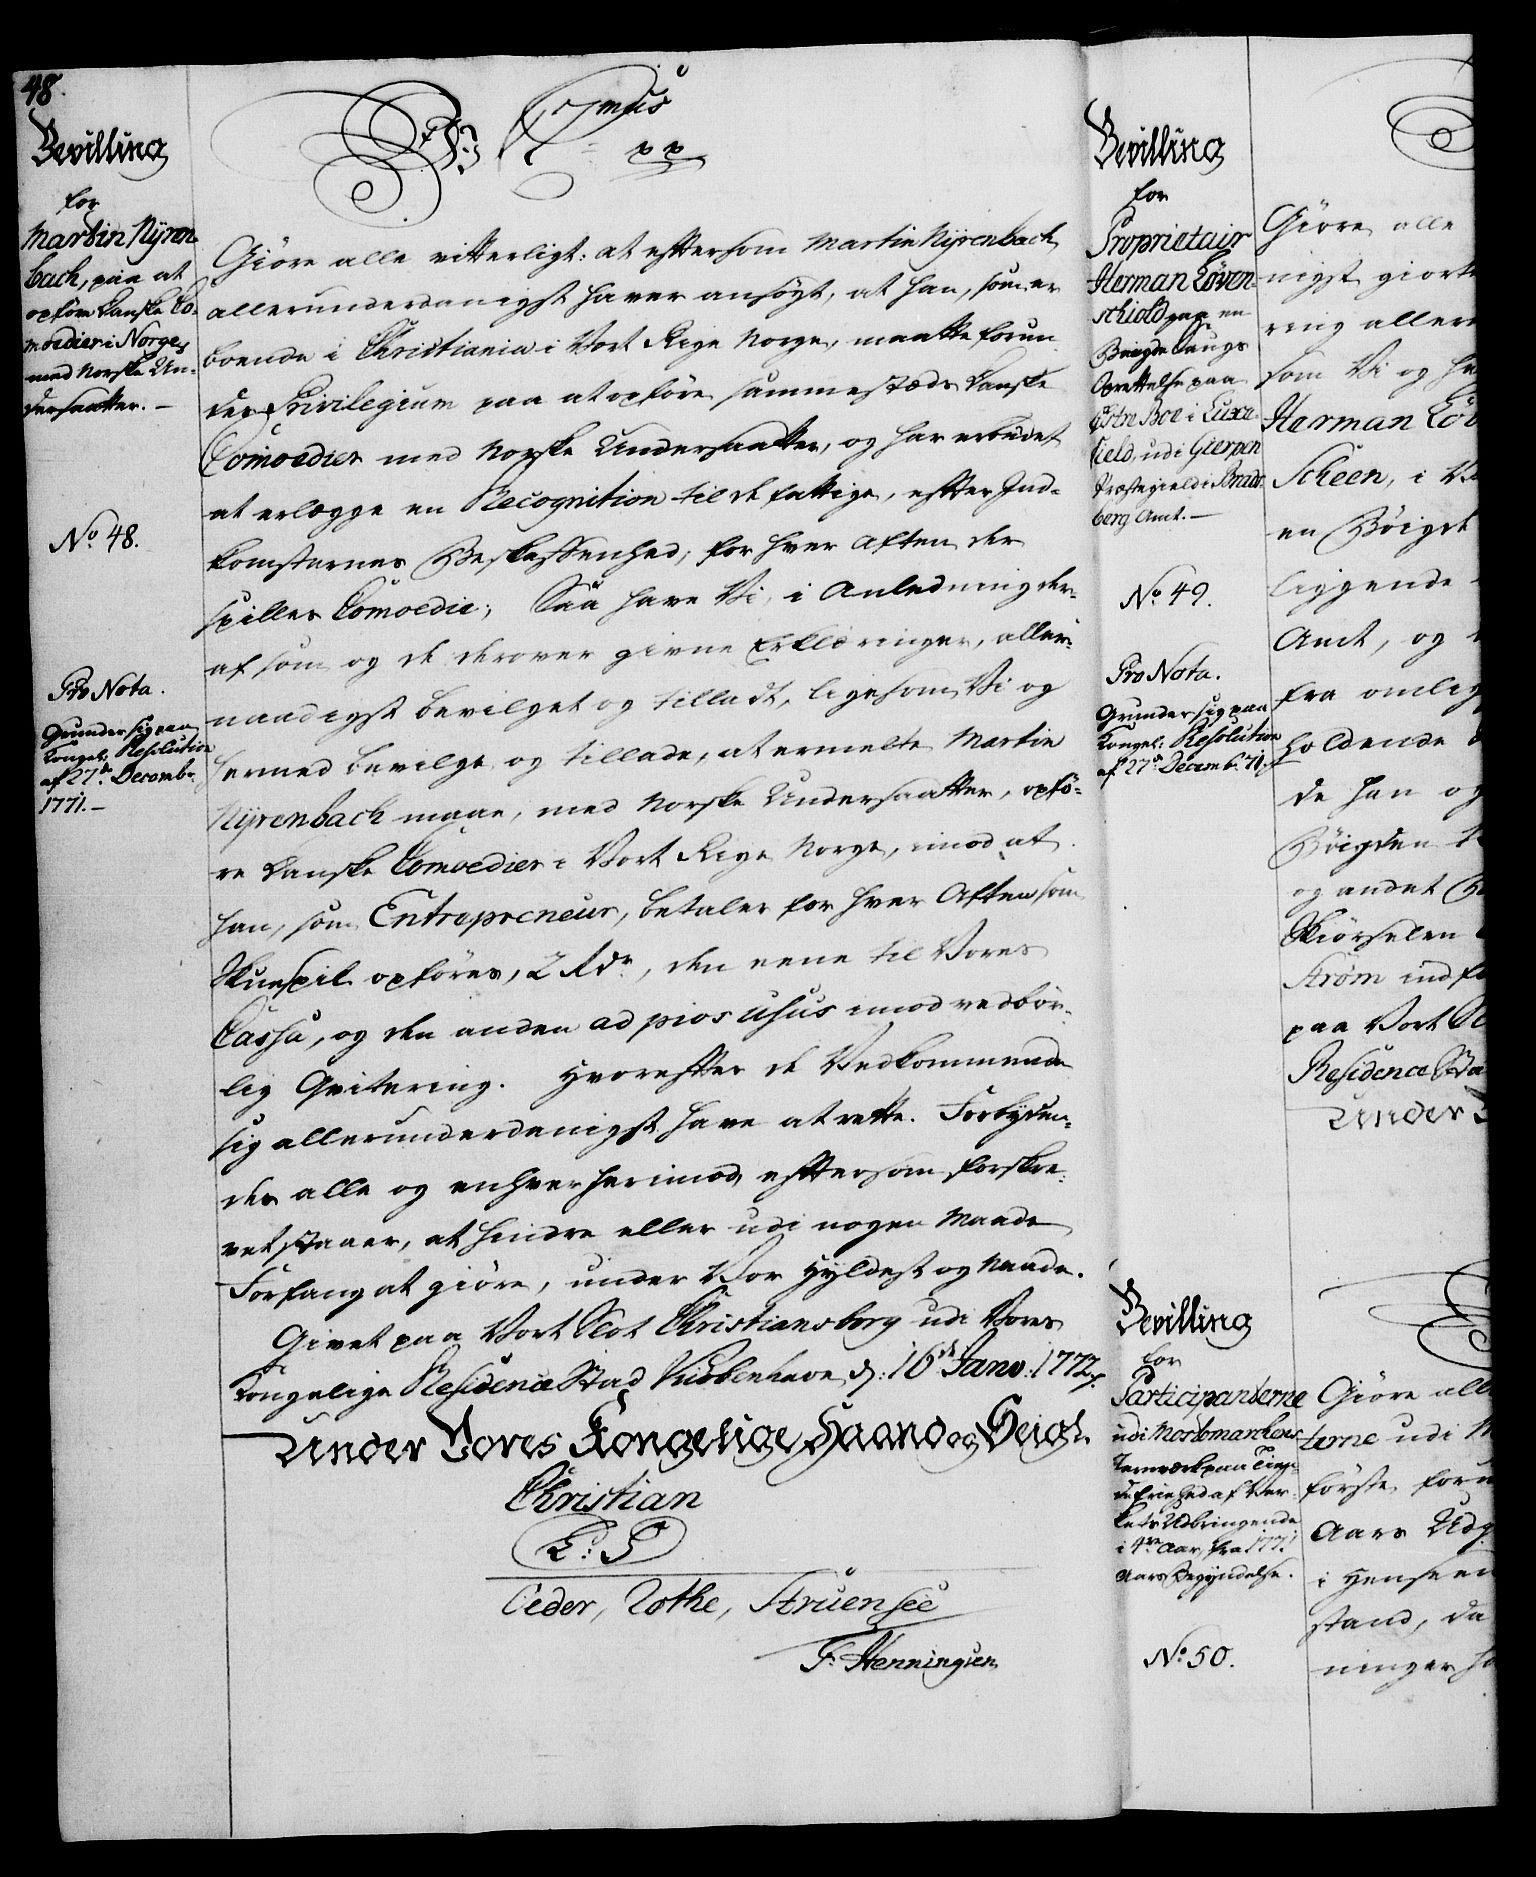 48.
Bevilling
for
Martin Nÿren-
bach, paa at
opføre Danske Co-
moedier i Norge,
med Norske Un-
dersaatter. –
No. 48.
Pro Nota.
Grunder sig paa
Kongel: Resolution
af 27de Decembr.
1771. –
pp
Giöre alle vitterligt: at eftersom Martin Nÿrenbach
allerunderdanigst haver ansögt, at han, som er
boende i Christiania i Vort Rige Norge, maatte forun-
des Privilegium paa at opföre sammestæds Danske
Comoedier med Norske Undersaatter, og har erbudet
at erlægge en Recognition til de fattige, efter Ind-
komsternes Beskaffenhed, for hver Aften der
spilles Comoedie; Saa have Vi, i Anledning der-
af som og de derover givne Erklæringer, aller-
naadigst bevilget og tilladt, ligesom Vi og
hermed bevilge og tillade, at ermelte Martin
Nÿrenbach maae, med Norske Undersaatter, opfö-
re Danske Comoedier i Vort Rige Norge, imod at
han, som Entrepreneur, betaler for hver Aften som
Skuespil opföres, 2 Rdr., den eene til Vores
Cassa, og den anden ad pios usus imod vedbör-
lig Qvitering. Hvorefter de Vedkommende
sig allerunderdanigst have at rette. Forbyden-
des alle og enhver herimod, eftersom forskre-
vet staaer, at hindre eller udi nogen Maade
Forfang at giöre, under Vor Hyldest og Naade.
Givet paa Vort Slot Christiansborg udi Vores
Kongelige Residence Stad Kiöbenhavn, d: 16de Janv: 1772.
Under Vores Kongelige Haand og Seigl.
Christian
L: S
Oeder, Rothe, Struensee
F. Henningsen
Bevilling
for
Proprietair
Herman Löven-
schiold paa en
Böigde Laugs
Oprettelse paa
Boe i Luxe-
field, udi Gierpen
Præstegield i Brads-
berg Amt. –
No. 49.
Pro Nota.
Grunder sig paa
Kongel: Resolution
af 27de Decemb. 71.
Giöre alle
nigst giort
ring aller
som Vi og he
Herman Löv
Scheen, i V
en Böigde
liggende
Amt, og
fra omlig
holdende
de han og
Böigden
og andet
Kiörselen
Ström indf
paa Vort
Residence Sta
Under
Bevilling
for
Participanterne
udi Mostmarkens
Jernværk paa Tien-
de Friehed af Ver-
kets Udbringende
i 4re Aar, fra 1771
Aars Begyndelse.
No. 50.
Giöre all
terne udi M
förste, for
Aars Udg
i Henseen
stand, da
ninger ha